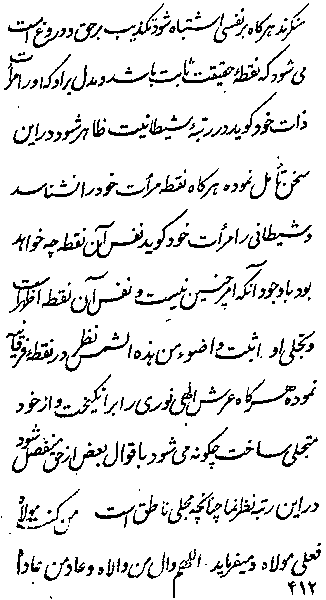 منکرند هرگاه بر نفسی اشتباه شود تکذیب بر حق و دروغ است
می شود که نقطهٔ حقیقت ثابت باشد و مدل بر او که اورا مرآت
ذات خود گوید در رتبهٔ شیطانیت ظاهر شود در این
سخن تأمل نموده هرگاه نقطه مرآت خود را نشناسد
و شیطانی را مرآت خود گوید نفس آن نقطه چه خواهد
بود با وجود آنکه امر چنین نیست و نفس آن نقطه اظهر است
و تجلی او اثبت و اضوء من هذه الشمس نظر در نقطهٔ فرقانیه
نموده هرگاه عرش الهی نوری را برانگیخت و از خود
متجلی ساخت چگونه می شود باقوال بعض از حق منفصل شود
در این رتبه نظر نما چنانچه مجلی ناطق است من کنت مولاه
فعلی مولاه و میفرماید اللهم وال من والاه و عاد من عاداه
۴۱۲